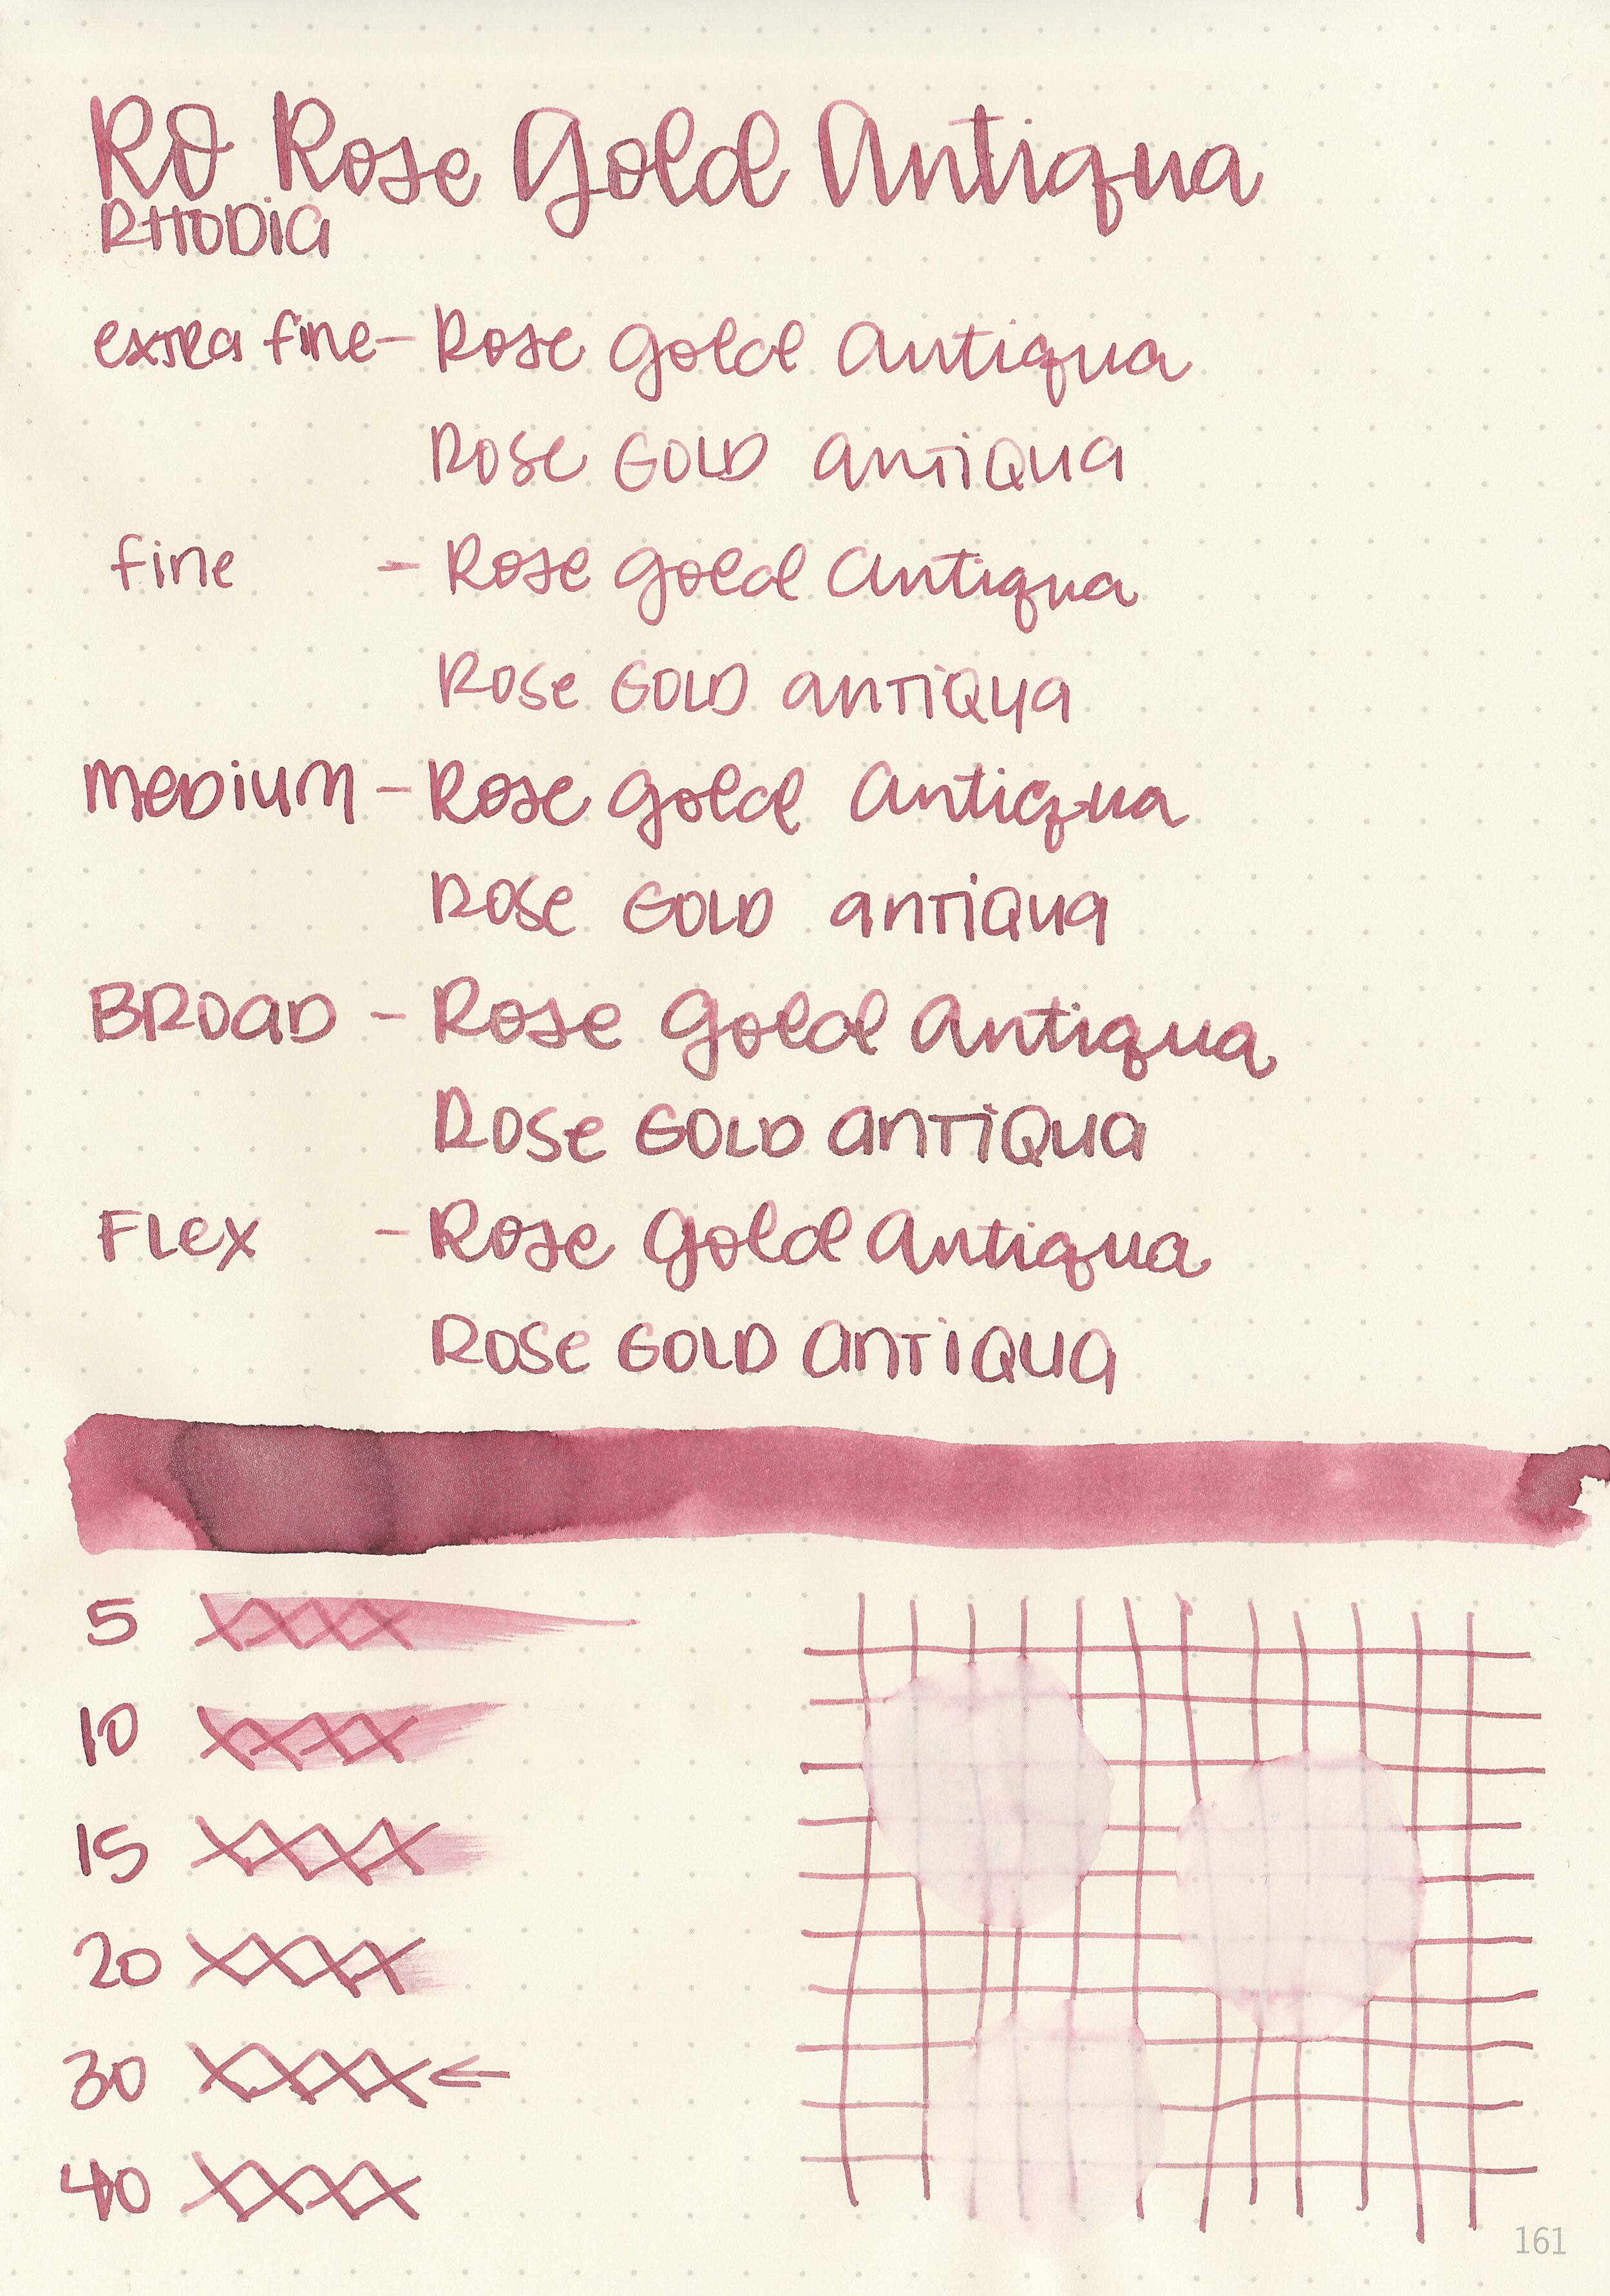 RO Rose Gold Antiqua
RHODIA
extra fine - Rose Gold Antiqua
ROSE GOLD ANTIQUA
fine - Rose Gold Antiqua
ROSE GOLD ANTIQUA
MEDIUM - Rose Gold Antiqua
ROSE GOLD ANTIQUA
BROAD - Rose Gold Antiqua
ROSE GOLD ANTIQUA
FLEX - Rose Gold Antiqua
ROSE GOLD ANTIQUA
5 XXXX
10 XXXX
15 XXXX
20 XXXX
30 XXXX ←
40 XXXX
161